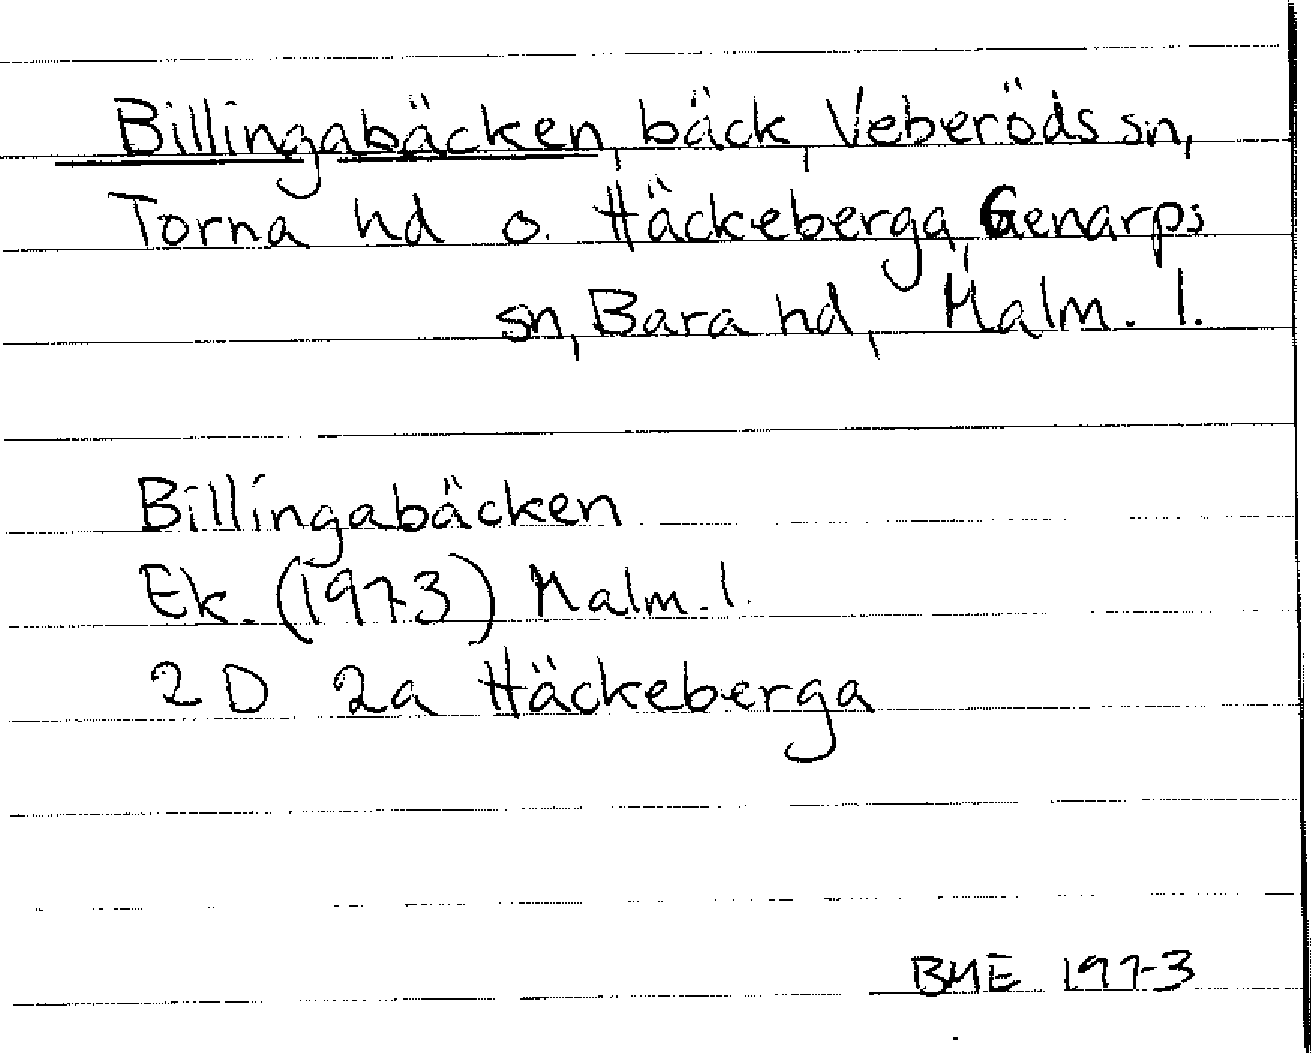 Billingabäcken, bäck, Veberöds sn,
Torna hd o. Häckeberga, Genarps
sn, Bara hd, Malm. l.
Billingabäcken
Ek. (1973) Malm. l.
2D 2a Häckeberga
BME 1973